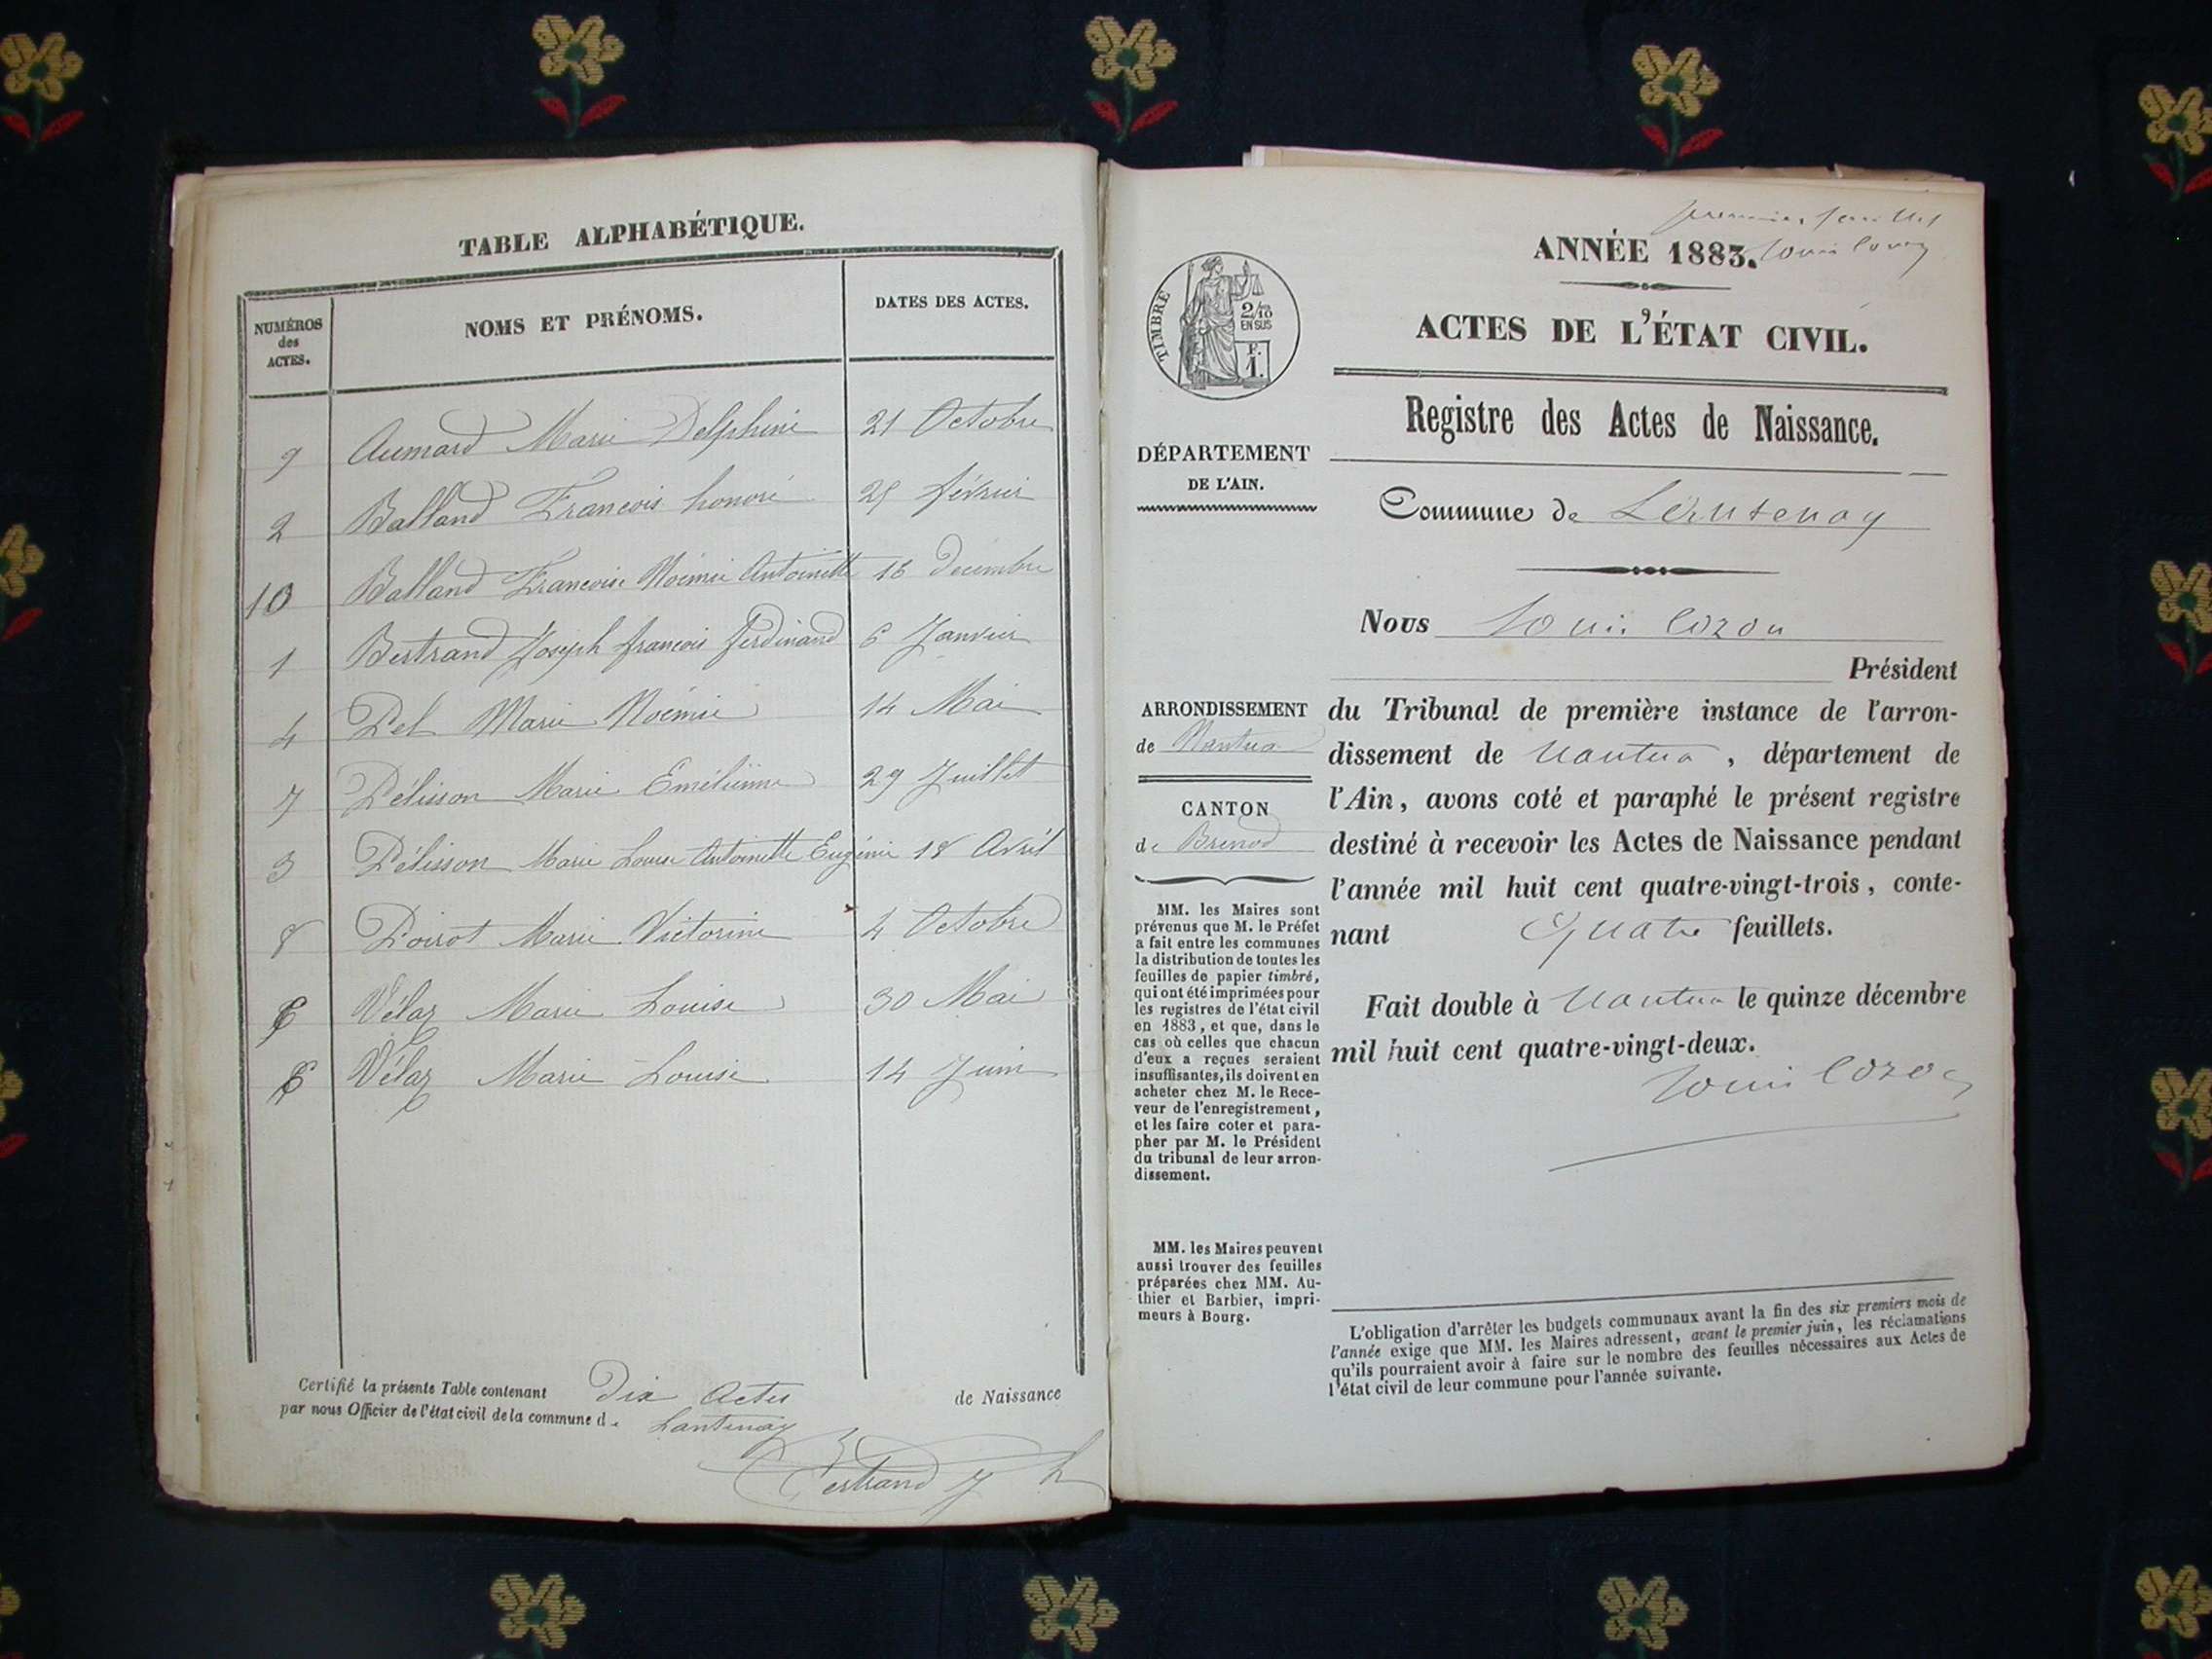 TABLE ALPHABÉTIQUE.
NUMÉROS
des
ACTES.
NOMS ET PRÉNOMS.
DATES DES ACTES.
9 Aumard Marie Delphine 21 Octobre
2 Balland François honoré 25 février
10 Balland Françoise Noémie Antoinette 16 Décembre
1 Bertrand Joseph françois ferdinand 6 Janvier
4 Pel Marie Noémie 14 Mai
7 Pélisson Marie Emélienne 29 Juillet
3 Pélisson Marie Louise Antoinette Eugénie 18 Avril
8 Poirot Marie Victorine 4 Octobre
Vélaz Marie Louise 30 Mai
Vélaz Marie Louise 14 Juin
Certifié la présente Table contenant Dix Actes de Naissance
par nous Officier de l'état civil de la commune de Lantenay
Bertrand J h
premier feuillet
Louis Cozon
ANNÉE 1883.
ACTES DE L'ÉTAT CIVIL.
TIMBRE
2/10
EN SUS
F.
1.
Registre des Actes de Naissance.
DÉPARTEMENT
DE L'AIN.
Commune de Lantenay
Nous Louis Cozon
Président
du Tribunal de première instance de l'arron-
dissement de Nantua, département de
l'Ain, avons coté et paraphé le présent registre
destiné à recevoir les Actes de Naissance pendant
l'année mil huit cent quatre-vingt-trois, conte-
nant Quatre feuillets.
Fait double à Nantua le quinze décembre
mil huit cent quatre-vingt-deux.
Louis Cozon
ARRONDISSEMENT
de Nantua
CANTON
de Brenod
MM. les Maires sont
prévenus que M. le Préfet
a fait entre les communes
la distribution de toutes les
feuilles de papier timbré,
qui ont été imprimées pour
les registres de l'état civil
en 1883, et que, dans le
cas où celles que chacun
d'eux a reçues seraient
insuffisantes, ils doivent en
acheter chez M. le Rece-
veur de l'enregistrement,
et les faire coter et para-
pher par M. le Président
du tribunal de leur arron-
dissement.
MM. les Maires peuvent
aussi trouver des feuilles
préparées chez MM. Au-
thier et Barbier, impri-
meurs à Bourg.
L'obligation d'arrêter les budgets communaux avant la fin des six premiers mois de
l'année exige que MM. les Maires adressent, avant le premier juin, les réclamations
qu'ils pourraient avoir à faire sur le nombre des feuilles nécessaires aux Actes de
l'état civil de leur commune pour l'année suivante.